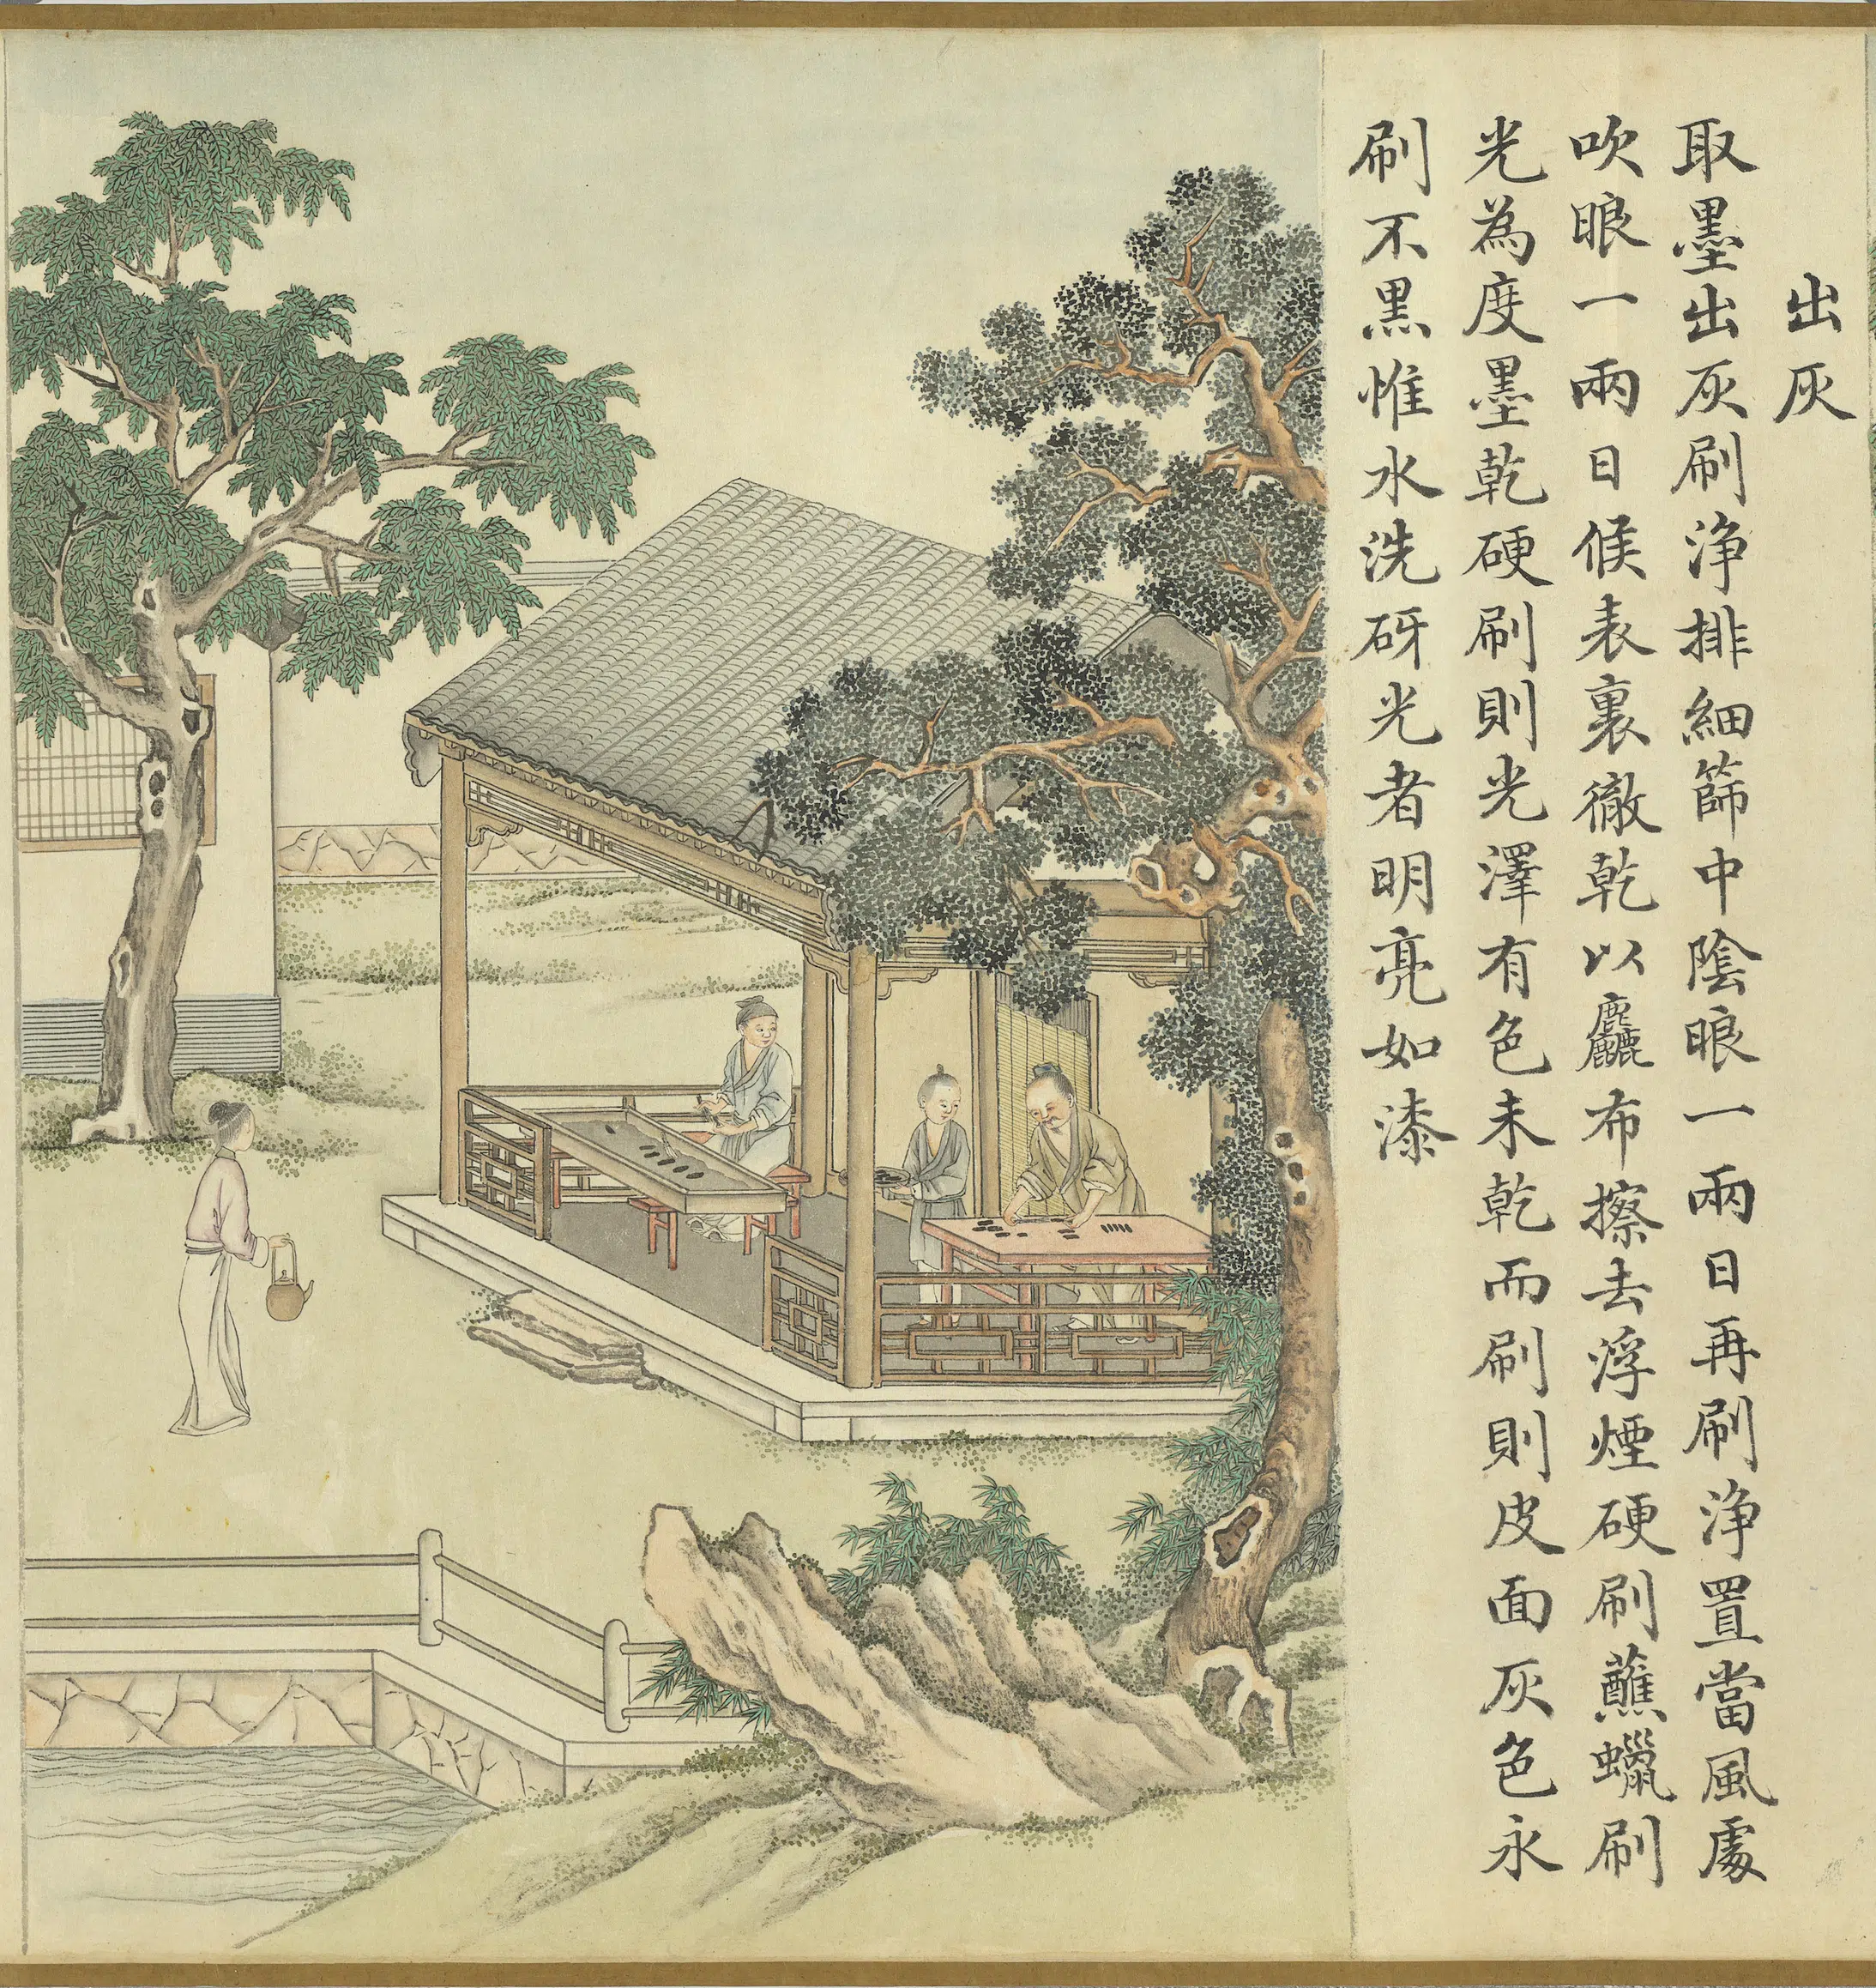 出灰
取墨出灰刷浄排細篩中陰眼一兩日再刷浄置當風處
吹眼一兩日候表裏徹乾以麤布擦去浮煙硬刷蘸蠟刷
光為度墨乾硬刷則光澤有色未乾而刷則皮面灰色永
刷不黒惟水洗砑光者明亮如漆